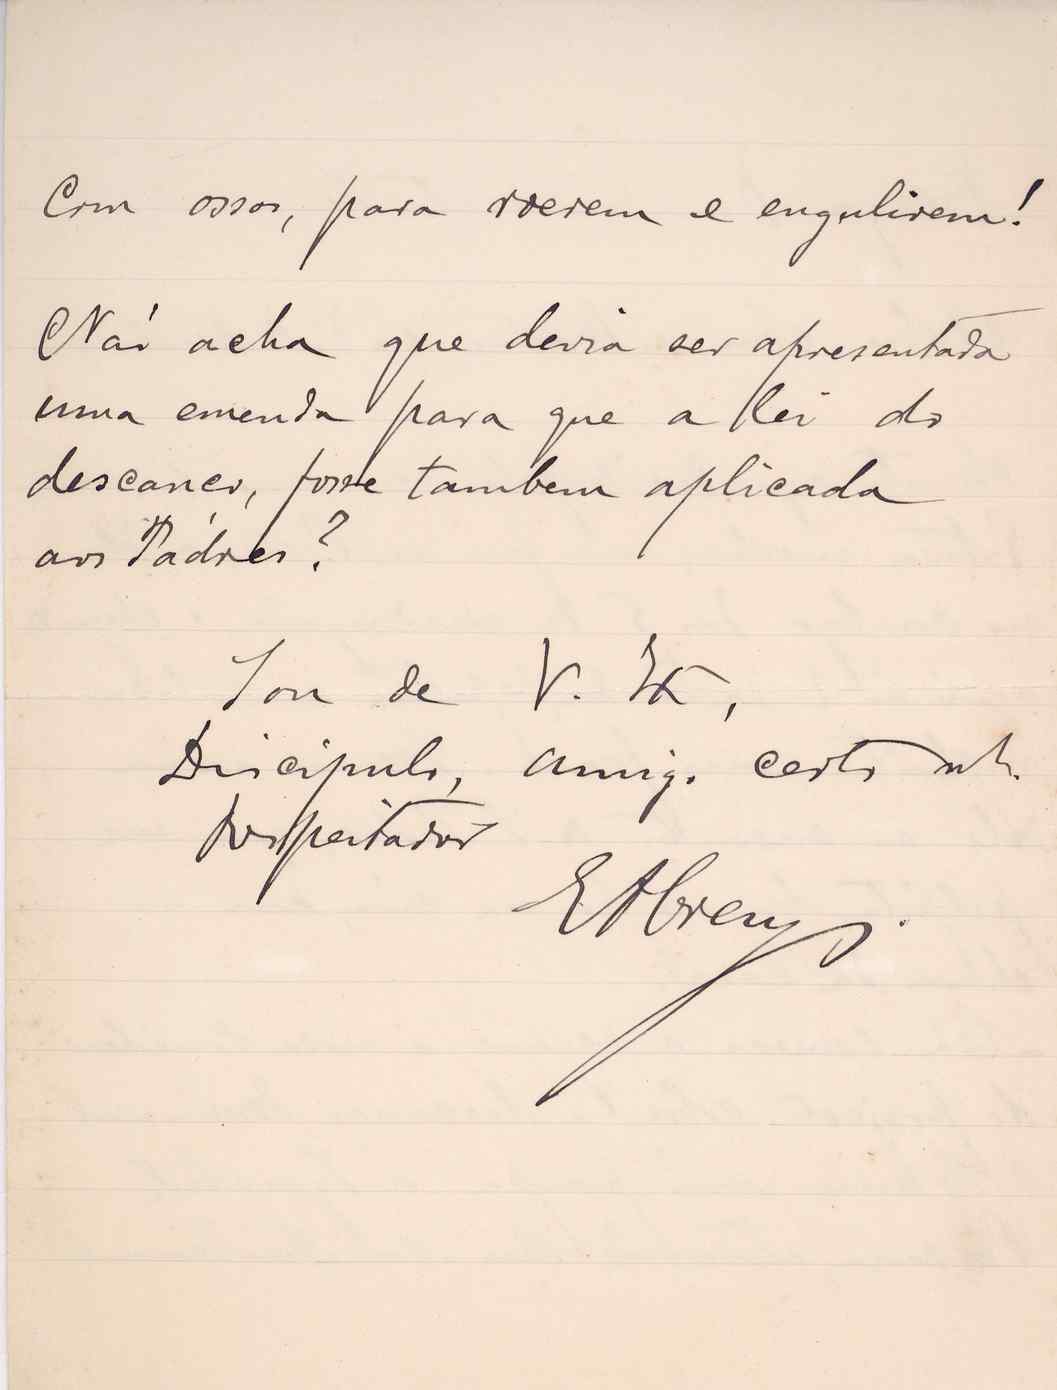 Com ossos, para roerem e engulirem!
Não acha que devia ser apresentada
uma emenda para que a lei do
descanço, fosse tambem aplicada
aos Pádres?
Sou de V. Ex,
Discipulo, amigo certo
respeitador
EAbreu